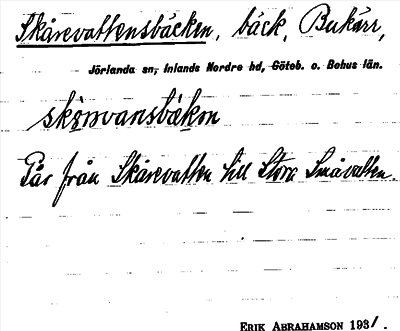 Skårevattensbäcken, bäck, Bukärr,
Jörlanda sn, Inlands Nordre hd, Göteb. o. Bohus län.
Går från Skårevatten till Stora Småvatten.
ERIK ABRAHAMSON 1931.